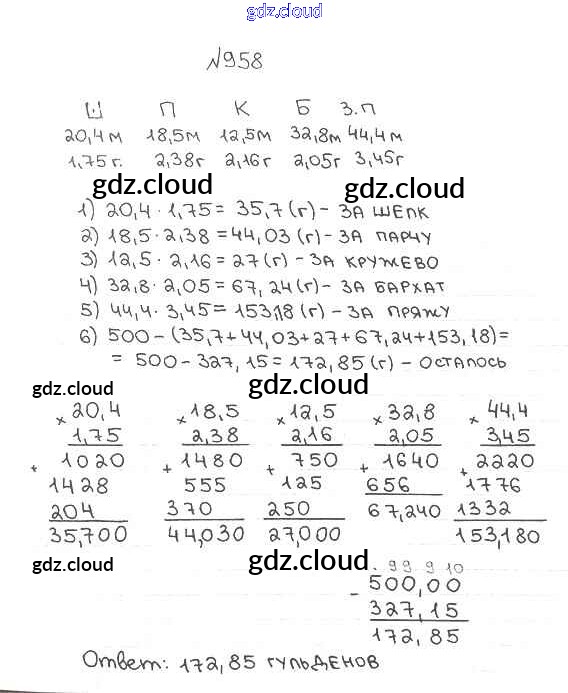 gdz.cloud
№958
Ш П К Б З.П
20,4м 18,5м 12,5м 32,8м 44,4м
1,75г. 2,38г 2,16г 2,05г 3,45г
gdz.cloud gdz.cloud
1) 20,4 · 1,75 = 35,7 (г) - ЗА ШЕЛК
2) 18,5 · 2,38 = 44,03 (г) - ЗА ПАРЧУ
3) 12,5 · 2,16 = 27 (г) - ЗА КРУЖЕВО
4) 32,8 · 2,05 = 67,24 (г) - ЗА БАРХАТ
5) 44,4 · 3,45 = 153,18 (г) - ЗА ПРЯЖУ
6) 500 - (35,7 + 44,03 + 27 + 67,24 + 153,18) =
= 500 - 327,15 = 172,85 (г) - ОСТАЛОСЬ
gdz.cloud gdz.cloud gdz.cloud
× 20,4 × 18,5 × 12,5 × 32,8 × 44,4
1,75 2,38 2,16 2,05 3,45
+ 1020 + 1480 + 750 + 1640 + 2220
1428 555 125 656 1776
204 370 250 67,240 1332
35,700 44,030 27,000 153,180
gdz.cloud gdz.cloud gdz.cloud
. 9 9 9 10
- 500,00
327,15
172,85
Ответ: 172,85 ГУЛЬДЕНОВ
gdz.cloud